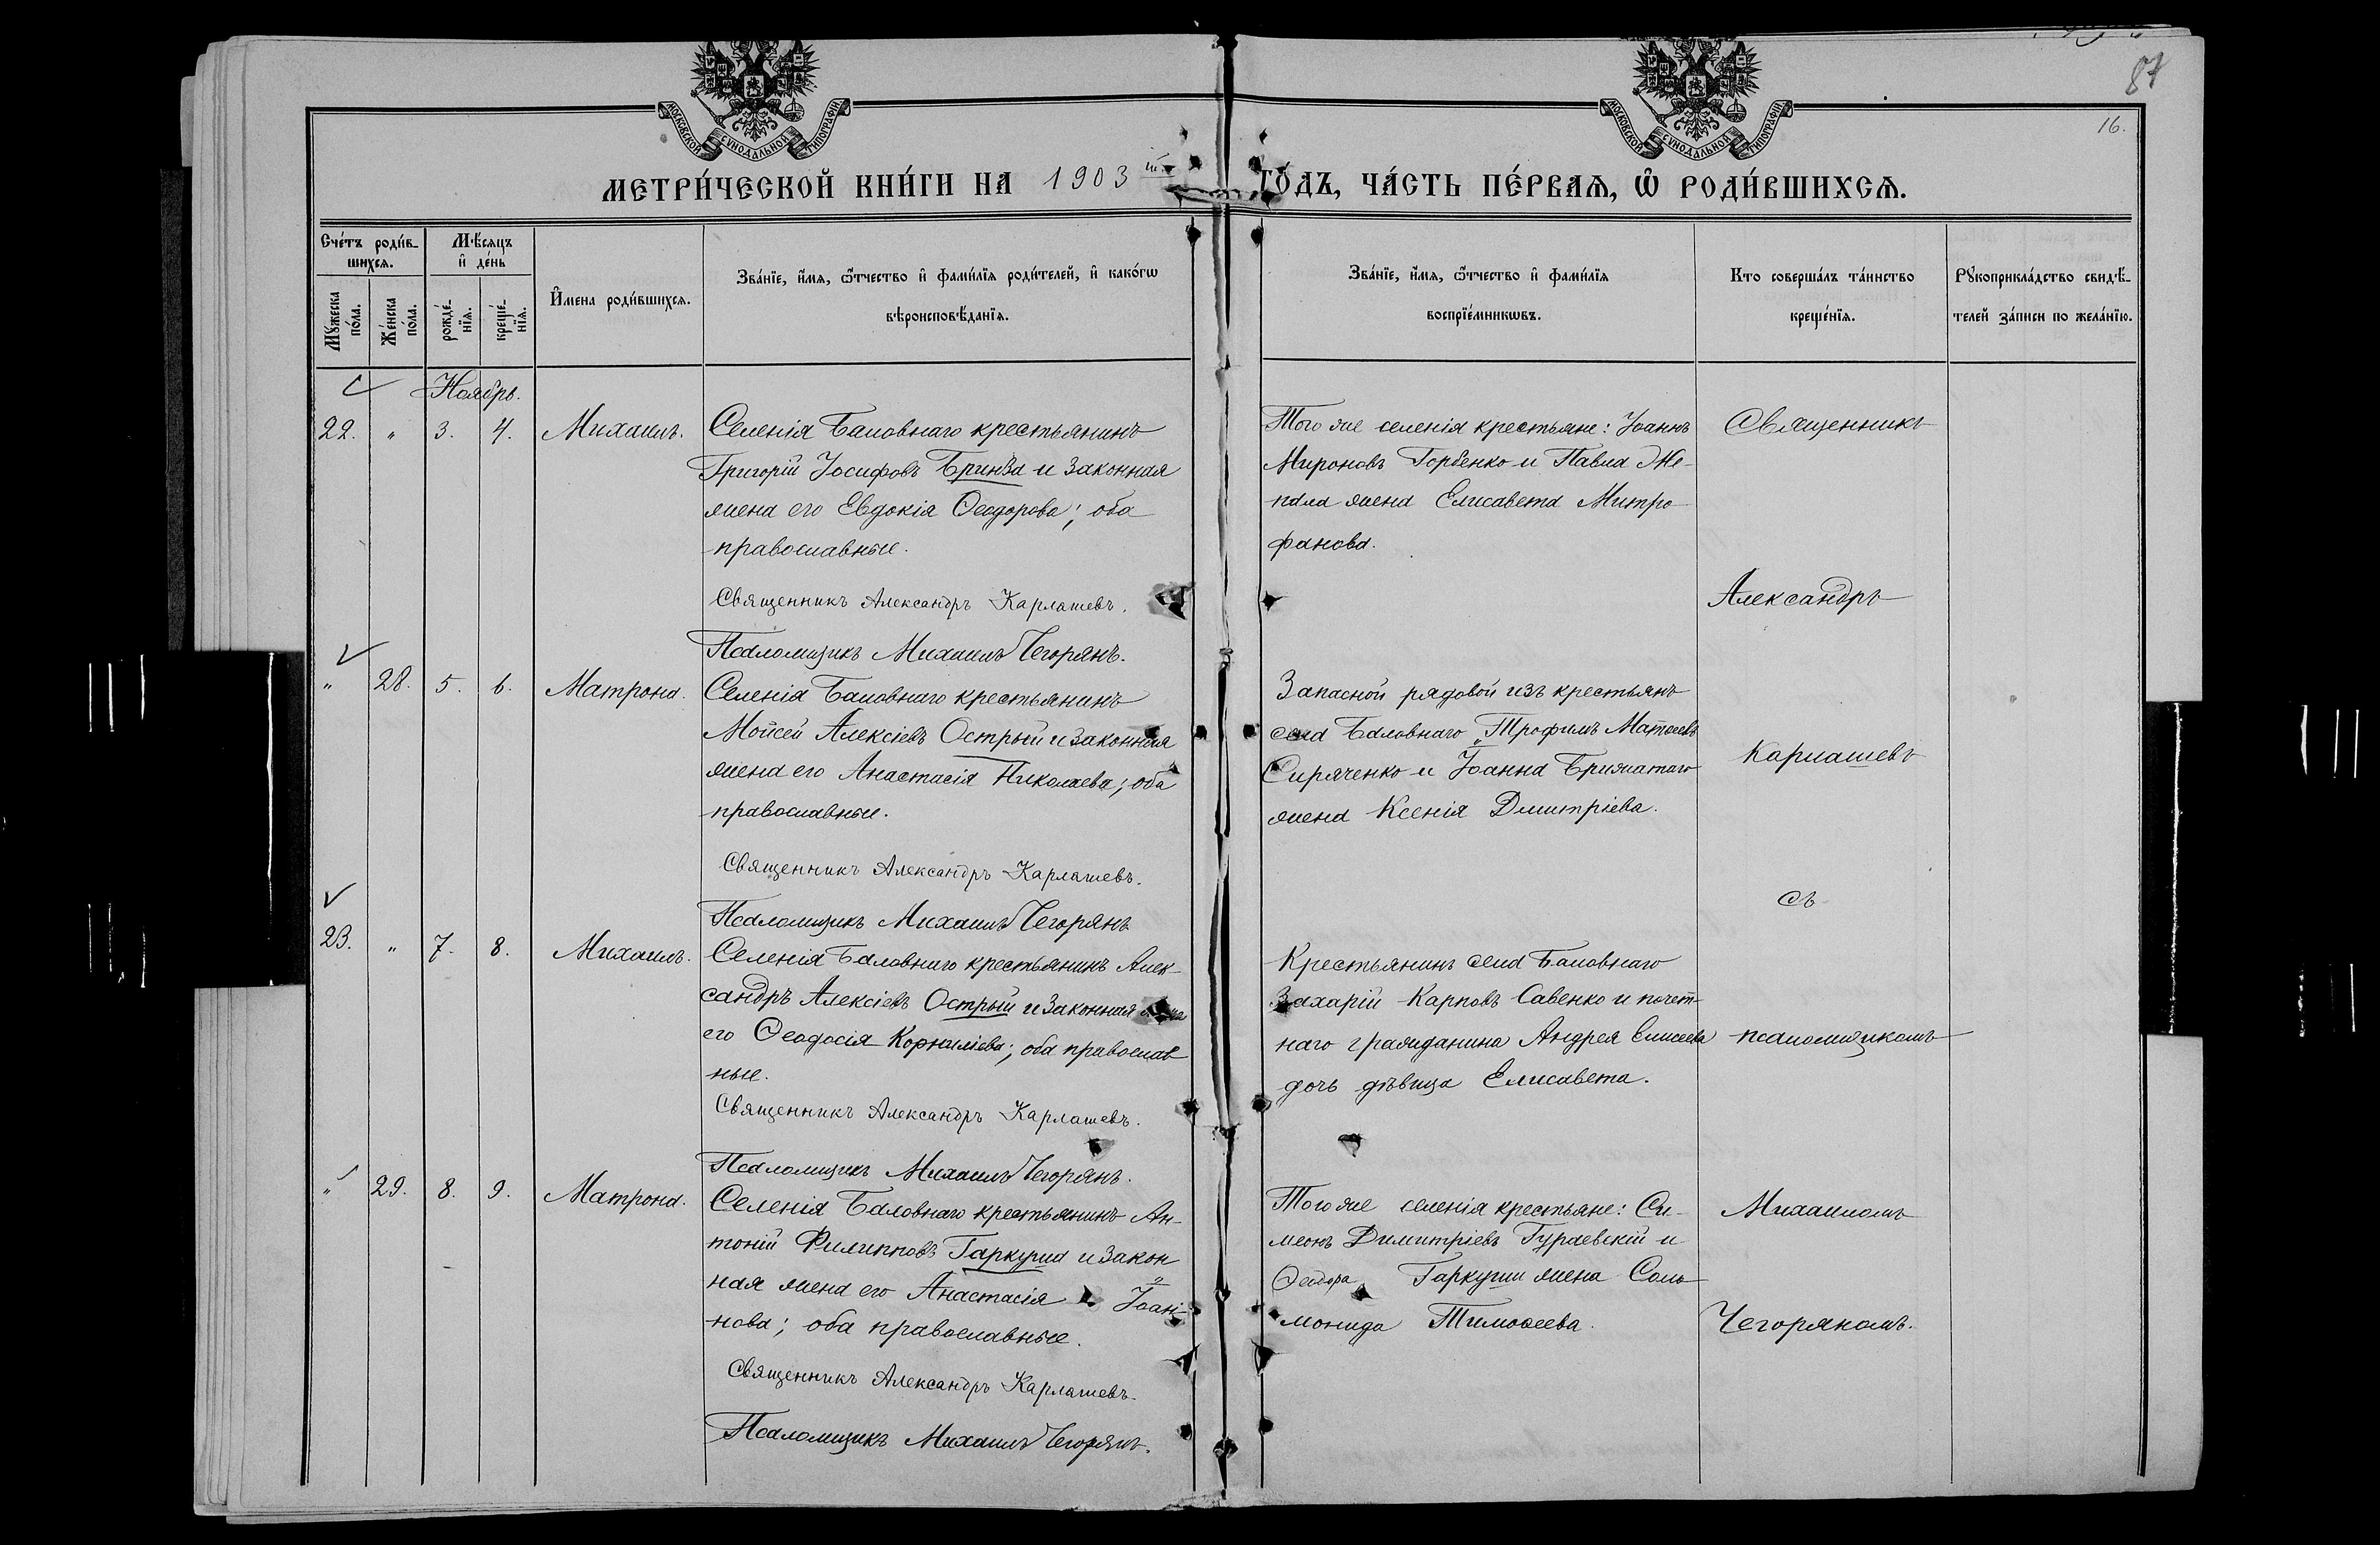 87
16.
МОСКОВСКОЙ СѴНОДАЛЬНОЙ ТИПОГРАФІИ
МОСКОВСКОЙ СѴНОДАЛЬНОЙ ТИПОГРАФІИ
МЕТРИ́ЧЕСКОЙ КНИ́ГИ НА 1903 ій ГО́ДЪ, ЧА́СТЬ ПЕ́РВАѦ, Ѡ҃ РОДИ́ВШИХСѦ.
Сче́тъ роди́в-
шихсѧ.
Мꙋ́жеска по́ла.
Же́нска по́ла.
Мѣ́сѧцъ и҆ де́нь
рожде́-нїѧ.
креще́-нїѧ.
И҆́мена роди́вшихсѧ.
Зва́нїе, и҆́мѧ, ѻ҆́тчество и҆ фами́лїѧ роди́телей, и҆ како́гѡ
вѣроисповѣ́данїѧ.
Зва́нїе, и҆́мѧ, ѻ҆́тчество и҆ фами́лїѧ
воспрїе́мникѡвъ.
Кто соверша́лъ та́инство
креще́нїѧ.
Рꙋкоприкла́дство свидѣ́-
телей за́писи по жела́нїю.
Ноябрь.
22. " 3. 4. Михаилъ.
Селенія Баловнаго крестьянинъ
Григорій Іосифовъ Бринза и законная
жена его Евдокія Ѳеодорова; оба
православные.
Священникъ Александръ Карлашевъ.
Псаломщикъ Михаилъ Чегорянъ.
Того же селенія крестьяне: Іоаннъ
Мироновъ Горбенко и Павла Же-
пала жена Елисавета Митро-
фанова.
" 28. 5. 6. Матрона.
Селенія Баловнаго крестьянинъ
Моисей Алексіевъ Острый и законная
жена его Анастасія Николаева; оба
православные.
Священникъ Александръ Карлашевъ.
Псаломщикъ Михаилъ Чегорянъ
Запасной рядовой изъ крестьянъ
села Баловнаго Трофимъ Матѳеевъ
Сиряченко и Іоанна Брижатаго
жена Ксенія Дмитріева.
23. " 7. 8. Михаилъ.
Селенія Баловнаго крестьянинъ Алек-
сандръ Алексіевъ Острый и законная жена
его Ѳеодосія Корниліева; оба православ
ные.
Священникъ Александръ Карлашевъ.
Псаломщикъ Михаилъ Чегорянъ.
Крестьянинъ села Баловнаго
Захарій Карповъ Савенко и почет-
наго гражданина Андрея Елисеева
дочь дѣвица Елисавета.
" 29. 8. 9. Матрона.
Селенія Баловнаго крестьянинъ Ан-
тоній Филипповъ Гаркуша и закон
ная жена его Анастасія Іоан-
нова; оба православные.
Священникъ Александръ Карлашевъ.
Псаломщикъ Михаилъ Чегорянъ.
Того же селенія крестьяне: Си-
меонъ Димитріевъ Гураевскій и
Ѳеодора Гаркуши жена Соло
монида Тимоѳеева.
Священникъ
Александръ
Карлашевъ
съ
псаломщикомъ
Михаиломъ
Чегоряномъ.